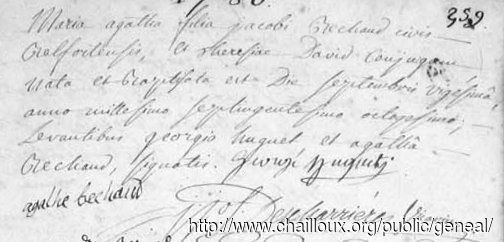 359
Maria agatha filia jacobi Bechaud civis
Belfortensis, et theresiae David Conjugum
Nata et Baptisata est Die septembris vigesimâ
anno millesimo septingentesimo octogesimo;
Levantibus georgio huguet et agatha
Bechaud, signatis.
agathe bechaud
http://www.chailloux.org/public/geneal/